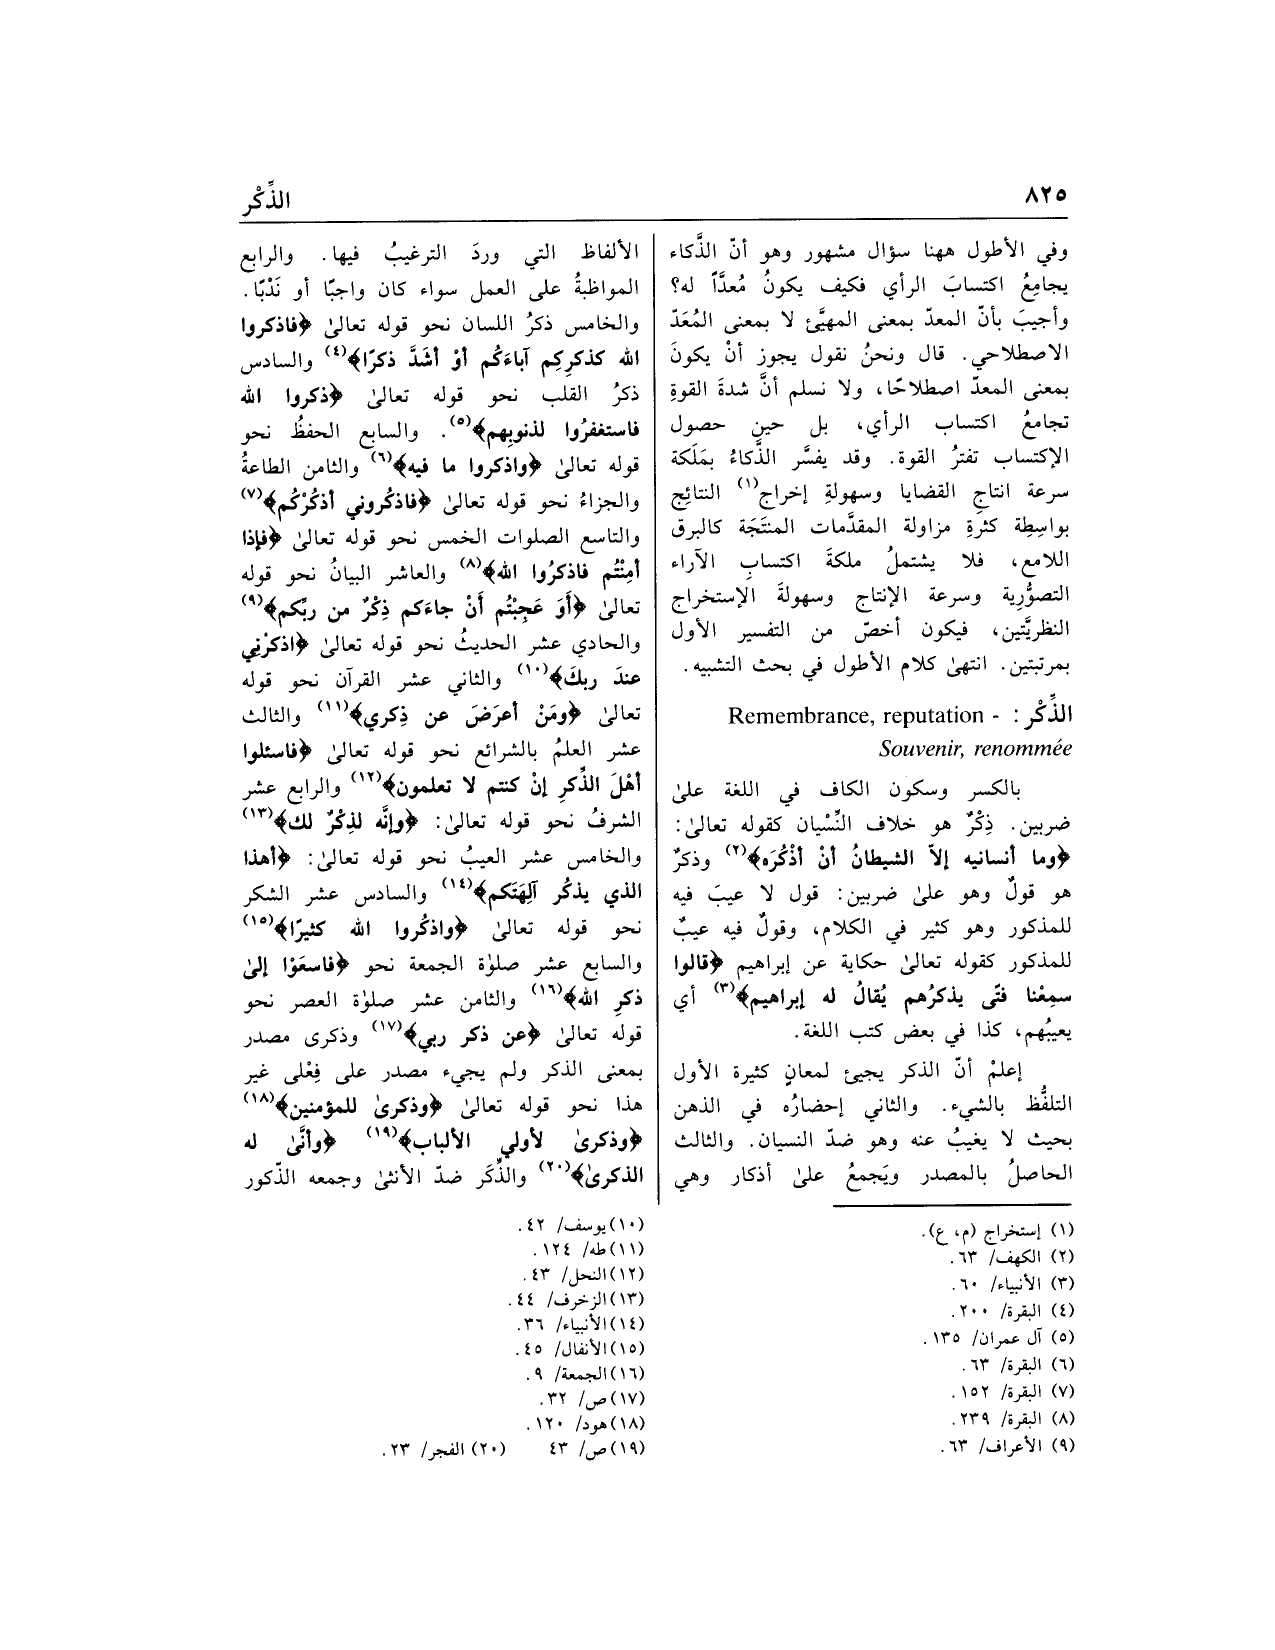 ٨٢٥
الذِّكْر
وفي الأطول ههنا سؤال مشهور وهو أنّ الذَّكاء
يجامِعُ اكتسابَ الرأي فكيف يكونُ مُعدَّاً له؟
وأجيبَ بأنّ المعدّ بمعنى المهيَّئ لا بمعنى المُعَدّ
الاصطلاحي. قال ونحنُ نقول يجوز أنْ يكونَ
بمعنى المعدّ اصطلاحًا، ولا نسلم أنَّ شدةَ القوةِ
تجامعُ اكتساب الرأي، بل حين حصول
الإكتساب تفترُ القوة. وقد يفسَّر الذَّكاءُ بمَلَكة
سرعة انتاجِ القضايا وسهولةِ إخراج(١) النتائِج
بواسِطِة كثرةِ مزاولة المقدَّمات المنتَجَة كالبرق
اللامع، فلا يشتملُ ملكةَ اكتسابِ الآراء
التصوُّرِية وسرعة الإنتاج وسهولةَ الإستخراج
النظريَّتين، فيكون أخصّ من التفسير الأول
بمرتبتين. انتهىٰ كلام الأطول في بحث التشبيه.
الذِّكْر: - Remembrance, reputation
Souvenir, renommée
بالكسر وسكون الكاف في اللغة علىٰ
ضربين. ذِكْرٌ هو خلاف النِّسْيان كقوله تعالىٰ:
﴿وما أنسانيه إلاّ الشيطانُ أنْ أذْكُرَه﴾(٢) وذكرٌ
هو قولٌ وهو علىٰ ضربين: قول لا عيبَ فيه
للمذكور وهو كثير في الكلام، وقولٌ فيه عيبٌ
للمذكور كقوله تعالىٰ حكاية عن إبراهيم ﴿قالوا
سمِعْنا فتًى يذكرُهم يُقالُ له إبراهيم﴾(٣) أي
يعيبُهم، كذا في بعض كتب اللغة.
إعلمْ أنّ الذكر يجيئ لمعانٍ كثيرة الأول
التلفُّظ بالشيء. والثاني إحضارُه في الذهن
بحيث لا يغيبُ عنه وهو ضدّ النسيان. والثالث
الحاصلُ بالمصدر ويَجمعُ علىٰ أذكار وهي
الألفاظ التي وردَ الترغيبُ فيها. والرابع
المواظبةُ على العمل سواء كان واجبًا أو نَدْبًا.
والخامس ذكرُ اللسان نحو قوله تعالىٰ ﴿فاذكروا
الله كذكرِكِم آباءَكُم أوْ أشَدَّ ذكرًا﴾(٤) والسادس
ذكرُ القلب نحو قوله تعالىٰ ﴿ذكروا الله
فاستغفرُوا لذنوبِهم﴾(٥). والسابع الحفظُ نحو
قوله تعالىٰ ﴿واذكروا ما فيه﴾(٦) والثامن الطاعةُ
والجزاءُ نحو قوله تعالىٰ ﴿فاذكُروني أذكُرْكُم﴾(٧)
والتاسع الصلوات الخمس نحو قوله تعالىٰ ﴿فإذا
أمِنْتُم فاذكرُوا الله﴾(٨) والعاشر البيانُ نحو قوله
تعالىٰ ﴿أوَ عَجِبْتُم أنْ جاءَكم ذِكْرٌ من ربِّكم﴾(٩)
والحادي عشر الحديثُ نحو قوله تعالىٰ ﴿اذكرْنِي
عندَ ربكَ﴾(١٠) والثاني عشر القرآن نحو قوله
تعالىٰ ﴿ومَنْ أعرَضَ عن ذِكري﴾(١١) والثالث
عشر العلمُ بالشرائع نحو قوله تعالىٰ ﴿فاسئلوا
أهْلَ الذِّكرِ إنْ كنتم لا تعلمون﴾(١٢) والرابع عشر
الشرفُ نحو قوله تعالىٰ: ﴿وإنَّه لذِكْرٌ لك﴾(١٣)
والخامس عشر العيبُ نحو قوله تعالىٰ: ﴿أهٰذا
الذي يذكُر آلِهَتَكم﴾(١٤) والسادس عشر الشكر
نحو قوله تعالىٰ ﴿واذكُروا الله كثيرًا﴾(١٥)
والسابع عشر صلوٰة الجمعة نحو ﴿فاسعَوْا إلىٰ
ذكرِ الله﴾(١٦) والثامن عشر صلوٰة العصر نحو
قوله تعالىٰ ﴿عن ذكر ربي﴾(١٧) وذكرى مصدر
بمعنى الذكر ولم يجيء مصدر على فِعْلى غير
هذا نحو قوله تعالىٰ ﴿وذكرىٰ للمؤمنين﴾(١٨)
﴿وذكرىٰ لأولي الألباب﴾(١٩) ﴿وأنَّىٰ له
الذكرىٰ﴾(٢٠) والذَّكَر ضدّ الأنثىٰ وجمعه الذّكور
(١) إستخراج (م، ع).
(٢) الكهف/ ٦٣.
(٣) الأنبياء/ ٦٠.
(٤) البقرة/ ٢٠٠.
(٥) آل عمران/ ١٣٥.
(٦) البقرة/ ٦٣.
(٧) البقرة/ ١٥٢.
(٨) البقرة/ ٢٣٩.
(٩) الأعراف/ ٦٣.
(١٠) يوسف/ ٤٢.
(١١) طه/ ١٢٤.
(١٢) النحل/ ٤٣.
(١٣) الزخرف/ ٤٤.
(١٤) الأنبياء/ ٣٦.
(١٥) الأنفال/ ٤٥.
(١٦) الجمعة/ ٩.
(١٧) ص/ ٣٢.
(١٨) هود/ ١٢٠.
(١٩) ص/ ٤٣ (٢٠) الفجر/ ٢٣.